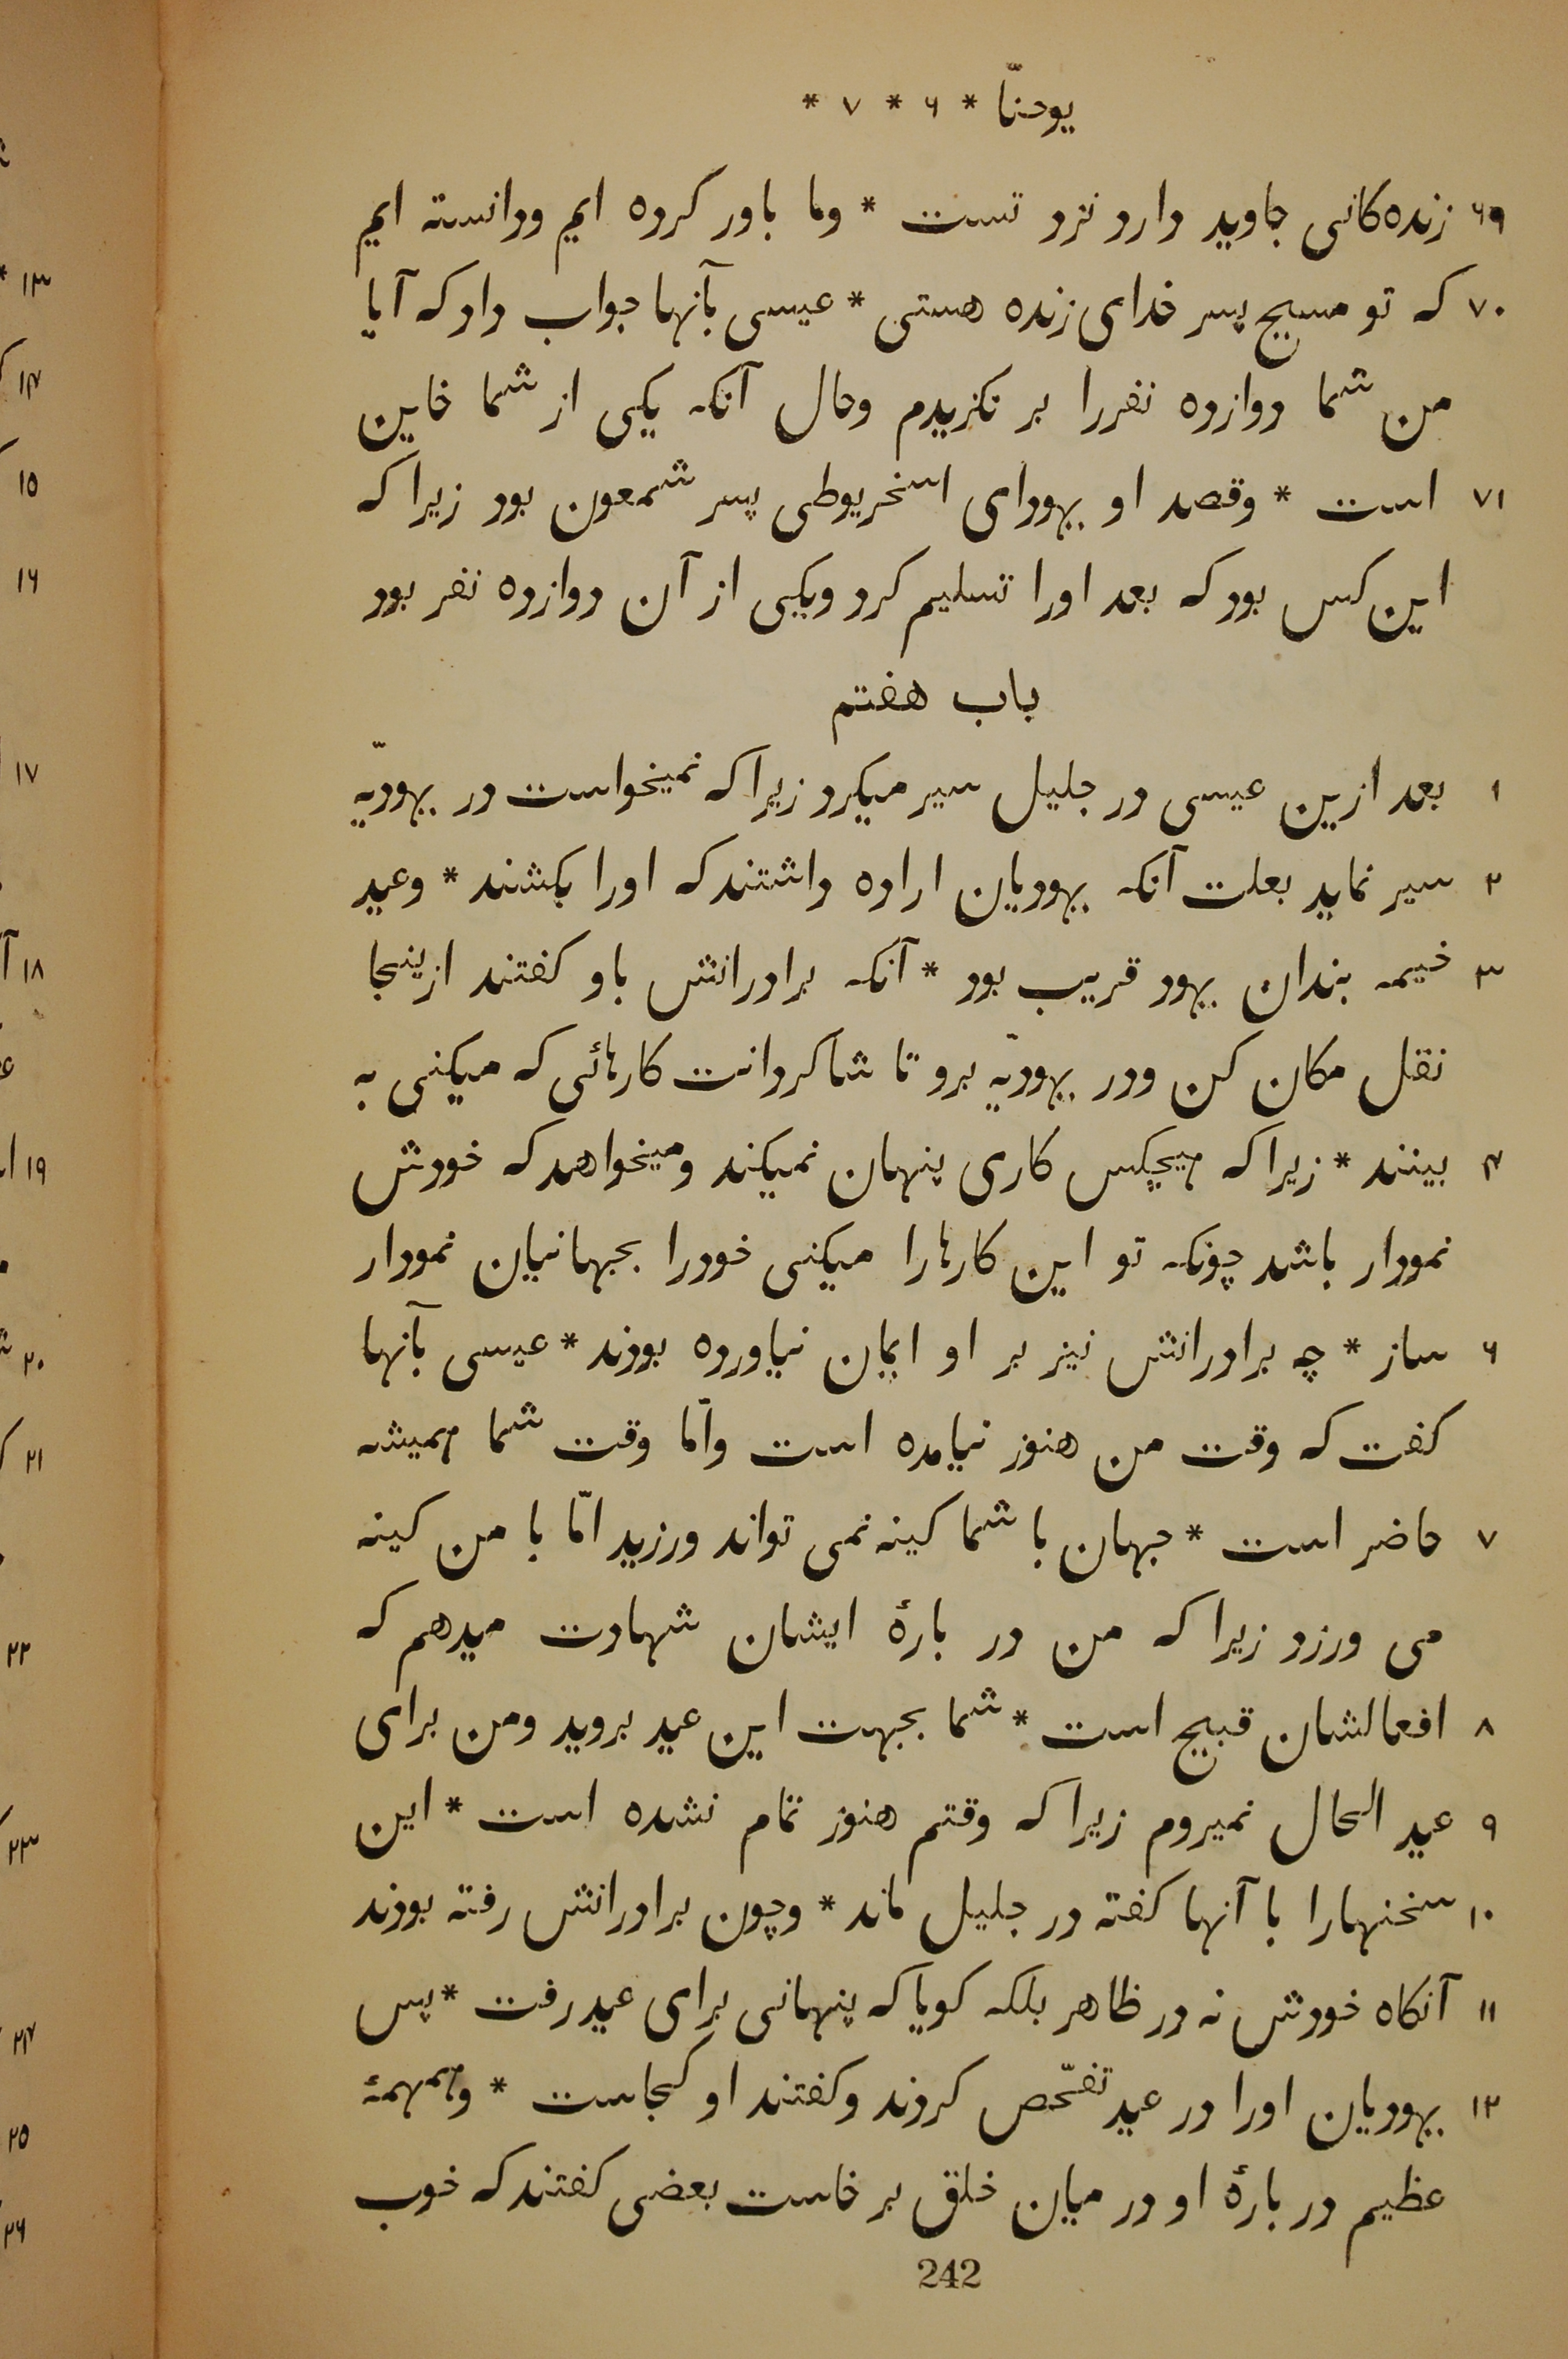 یوحنّا * ۶ * ۷ *
۶۹ زنده‌کانی جاوید دارد نزد تست * وما باور کرده ایم ودانسته ایم
۷۰ که تو مسیح پسر خدای زنده هستی * عیسی بآنها جواب داد که آیا
من شما دوازده نفررا بر نکزیدم وحال آنکه یکی از شما خاین
۷۱ است * وقصد او یهودای اسخریوطی پسر شمعون بود زیرا که
این کس بود که بعد اورا تسلیم کرد ویکی از آن دوازده نفر بود
باب هفتم
۱ بعد ازین عیسی در جلیل سیر میکرد زیرا که نمیخواست در یهودیّه
۲ سیر نماید بعلت آنکه یهودیان اراده داشتند که اورا بکشند * وعید
۳ خیمه بندان یهود قریب بود * آنکه برادرانش باو کفتند ازینجا
نقل مکان کن ودر یهودیّه برو تا شاکردانت کارهائی که میکنی به
۴ بینند * زیرا که هیچکس کاری پنهان نمیکند ومیخواهد که خودش
نمودار باشد چونکه تو این کارهارا میکنی خودرا بجهانیان نمودار
۶ ساز * چه برادرانش نیز بر او ایمان نیاورده بودند * عیسی بآنها
کفت که وقت من هنوز نیامده است وامّا وقت شما همیشه
۷ حاضر است * جهان با شما کینه نمی تواند ورزید امّا با من کینه
می ورزد زیرا که من در بارهٔ ایشان شهادت میدهم که
۸ افعالشان قبیح است * شما بجهت این عید بروید ومن برای
۹ عید الحال نمیروم زیرا که وقتم هنوز تمام نشده است * این
۱۰ سخنهارا با آنها کفته در جلیل ماند * وچون برادرانش رفته بودند
۱۱ آنکاه خودش نه در ظاهر بلکه کویا که پنهانی برای عید رفت * پس
۱۲ یهودیان اورا در عید تفحّص کردند وکفتند او کجاست * وهمهمهٔ
عظیم در بارهٔ او در میان خلق بر خاست بعضی کفتند که خوب
242
۱۳ *
۱۴
۱۵
۱۶
۱۷
۱۸
۱۹
۲۰
۲۱
۲۲
۲۳
۲۴
۲۵
۲۶